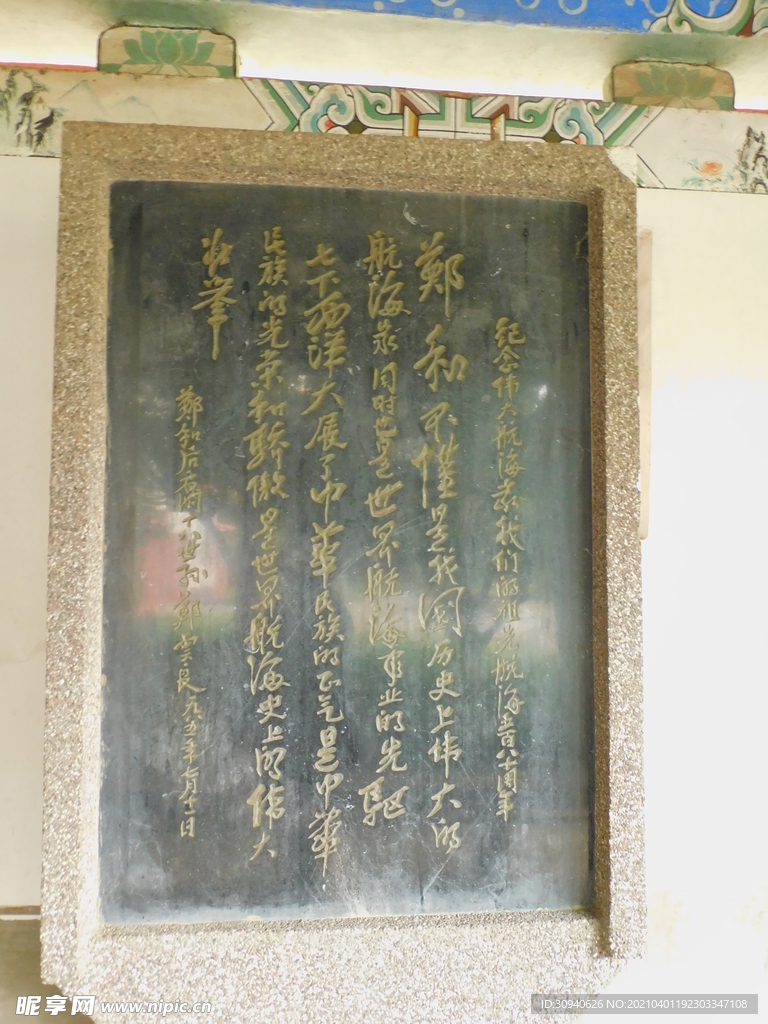 纪念伟大航海家我们的祖先航海五百八十周年
郑和不惟是我国历史上伟大的
航海家同时也是世界航海事业的先驱
七下西洋大展了中华民族的正气是中华
民族的光荣和骄傲是世界航海史上的伟大
壮举
郑和后裔十八世孙郑云良一九八五年七月十一日
昵享网 www.nipic.cn
ID:30940626 NO:20210401192303347108